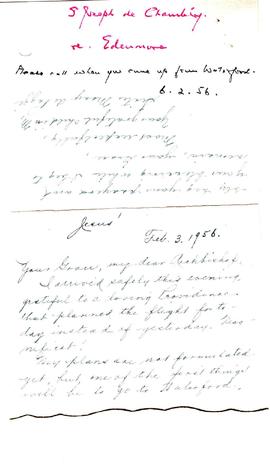 S Joseph de Chambéry.
re. Edenmore
Please call when you come up from Waterford.
6.2.56.
beg your prayers and
your blessing while I beg to
remain, your Grace,
Most respectfully,
Your grateful child in
Sister Mary de
Jesus!
Feb. 3. 1956.
Your Grace, my dear Archbishop,
I arrived safely this evening,
grateful to a loving Providence
that planned the flight for to-
day instead of yesterday. Mag-
nificat!
My plans are not formulated
yet, but, one of the first things
will be to go to Waterford.